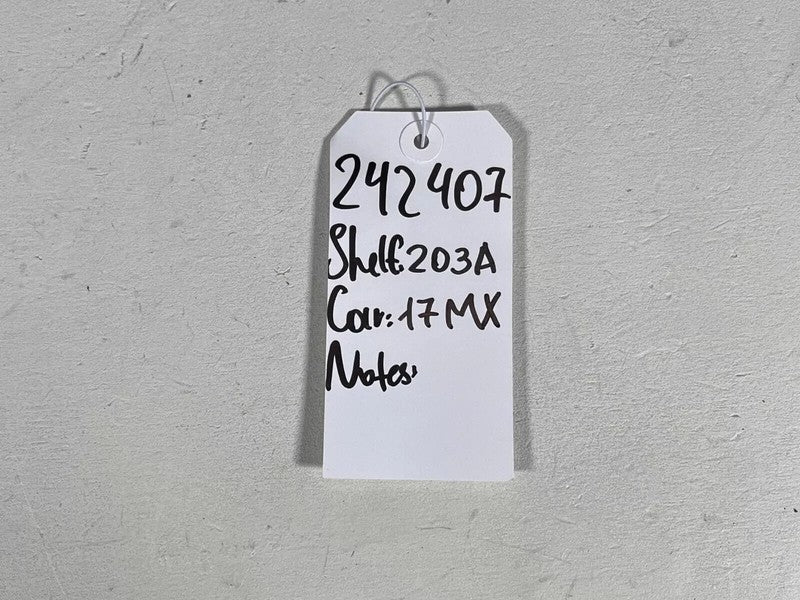 242407
Shelf: 203A
Car: 17 MX
Notes: